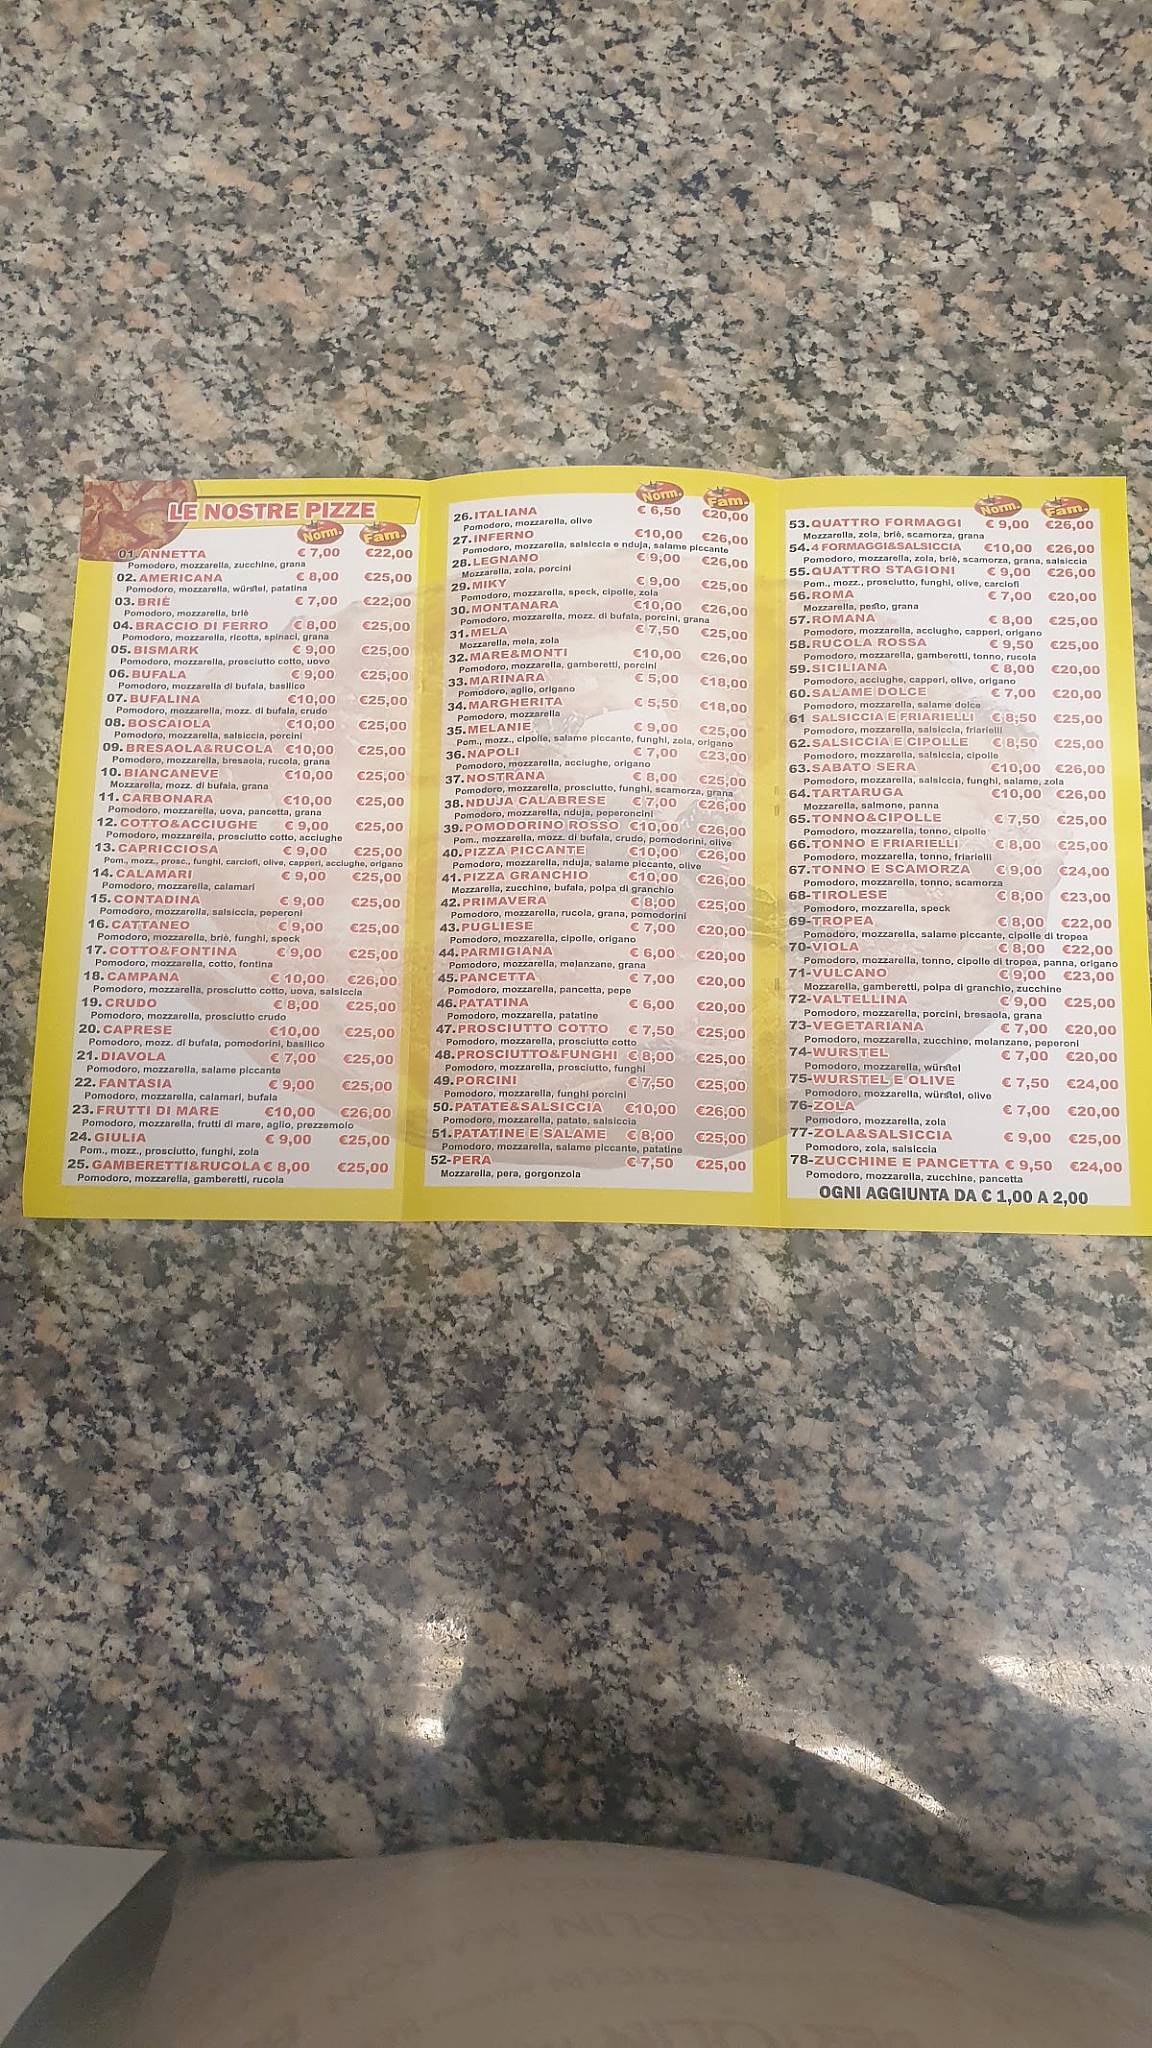 LE NOSTRE PIZZE
Norm. Fam.
01. ANNETTA € 7,00 €22,00
Pomodoro, mozzarella, zucchine, grana
02. AMERICANA € 8,00 €25,00
Pomodoro, mozzarella, würstel, patatina
03. BRIÈ € 7,00 €22,00
Pomodoro, mozzarella, briè
04. BRACCIO DI FERRO € 8,00 €25,00
Pomodoro, mozzarella, ricotta, spinaci, grana
05. BISMARK € 9,00 €25,00
Pomodoro, mozzarella, prosciutto cotto, uovo
06. BUFALA € 9,00 €25,00
Pomodoro, mozzarella di bufala, basilico
07. BUFALINA €10,00 €25,00
Pomodoro, mozzarella, mozz. di bufala, crudo
08. BOSCAIOLA €10,00 €25,00
Pomodoro, mozzarella, salsiccia, porcini
09. BRESAOLA&RUCOLA €10,00 €25,00
Pomodoro, mozzarella, bresaola, rucola, grana
10. BIANCANEVE €10,00 €25,00
Mozzarella, mozz. di bufala, grana
11. CARBONARA €10,00 €25,00
Pomodoro, mozzarella, uova, pancetta, grana
12. COTTO&ACCIUGHE € 9,00 €25,00
Pomodoro, mozzarella, prosciutto cotto, acciughe
13. CAPRICCIOSA € 9,00 €25,00
Pom., mozz., prosc., funghi, carciofi, olive, capperi, acciughe, origano
14. CALAMARI € 9,00 €25,00
Pomodoro, mozzarella, calamari
15. CONTADINA € 9,00 €25,00
Pomodoro, mozzarella, salsiccia, peperoni
16. CATTANEO € 9,00 €25,00
Pomodoro, mozzarella, briè, funghi, speck
17. COTTO&FONTINA € 9,00 €25,00
Pomodoro, mozzarella, cotto, fontina
18. CAMPANA € 10,00 €26,00
Pomodoro, mozzarella, prosciutto cotto, uova, salsiccia
19. CRUDO € 8,00 €25,00
Pomodoro, mozzarella, prosciutto crudo
20. CAPRESE €10,00 €25,00
Pomodoro, mozz. di bufala, pomodorini, basilico
21. DIAVOLA € 7,00 €25,00
Pomodoro, mozzarella, salame piccante
22. FANTASIA € 9,00 €25,00
Pomodoro, mozzarella, calamari, bufala
23. FRUTTI DI MARE €10,00 €26,00
Pomodoro, mozzarella, frutti di mare, aglio, prezzemolo
24. GIULIA € 9,00 €25,00
Pom., mozz., prosciutto, funghi, zola
25. GAMBERETTI&RUCOLA € 8,00 €25,00
Pomodoro, mozzarella, gamberetti, rucola
Norm. Fam.
26. ITALIANA € 6,50 €20,00
Pomodoro, mozzarella, olive
27. INFERNO €10,00 €26,00
Pomodoro, mozzarella, salsiccia e nduja, salame piccante
28. LEGNANO € 9,00 €26,00
Mozzarella, zola, porcini
29. MIKY € 9,00 €25,00
Pomodoro, mozzarella, speck, cipolle, zola
30. MONTANARA €10,00 €26,00
Pomodoro, mozzarella, mozz. di bufala, porcini, grana
31. MELA € 7,50 €25,00
Mozzarella, mela, zola
32. MARE&MONTI €10,00 €26,00
Pomodoro, mozzarella, gamberetti, porcini
33. MARINARA € 5,00 €18,00
Pomodoro, aglio, origano
34. MARGHERITA € 5,50 €18,00
Pomodoro, mozzarella
35. MELANIE € 9,00 €25,00
Pom., mozz., cipolle, salame piccante, funghi, zola, origano
36. NAPOLI € 7,00 €23,00
Pomodoro, mozzarella, acciughe, origano
37. NOSTRANA € 8,00 €25,00
Pomodoro, mozzarella, prosciutto, funghi, scamorza, grana
38. NDUJA CALABRESE € 7,00 €26,00
Pomodoro, mozzarella, nduja, peperoncini
39. POMODORINO ROSSO €10,00 €26,00
Pom., mozzarella, mozz. di bufala, crudo, pomodorini, olive
40. PIZZA PICCANTE €10,00 €26,00
Pomodoro, mozzarella, nduja, salame piccante, olive
41. PIZZA GRANCHIO €10,00 €26,00
Mozzarella, zucchine, bufala, polpa di granchio
42. PRIMAVERA € 8,00 €25,00
Pomodoro, mozzarella, rucola, grana, pomodorini
43. PUGLIESE € 7,00 €20,00
Pomodoro, mozzarella, cipolle, origano
44. PARMIGIANA € 6,00 €20,00
Pomodoro, mozzarella, melanzane, grana
45. PANCETTA € 7,00 €20,00
Pomodoro, mozzarella, pancetta, pepe
46. PATATINA € 6,00 €20,00
Pomodoro, mozzarella, patatine
47. PROSCIUTTO COTTO € 7,50 €25,00
Pomodoro, mozzarella, prosciutto cotto
48. PROSCIUTTO&FUNGHI € 8,00 €25,00
Pomodoro, mozzarella, prosciutto, funghi
49. PORCINI € 7,50 €25,00
Pomodoro, mozzarella, funghi porcini
50. PATATE&SALSICCIA €10,00 €26,00
Pomodoro, mozzarella, patate, salsiccia
51. PATATINE E SALAME € 8,00 €25,00
Pomodoro, mozzarella, salame piccante, patatine
52-PERA € 7,50 €25,00
Mozzarella, pera, gorgonzola
Norm. Fam.
53. QUATTRO FORMAGGI € 9,00 €26,00
Mozzarella, zola, briè, scamorza, grana
54. 4 FORMAGGI&SALSICCIA €10,00 €26,00
Pomodoro, mozzarella, zola, briè, scamorza, grana, salsiccia
55. QUATTRO STAGIONI € 9,00 €26,00
Pom., mozz., prosciutto, funghi, olive, carciofi
56. ROMA € 7,00 €20,00
Mozzarella, pesto, grana
57. ROMANA € 8,00 €25,00
Pomodoro, mozzarella, acciughe, capperi, origano
58. RUCOLA ROSSA € 9,50 €25,00
Pomodoro, mozzarella, gamberetti, tonno, rucola
59. SICILIANA € 8,00 €20,00
Pomodoro, acciughe, capperi, olive, origano
60. SALAME DOLCE € 7,00 €20,00
Pomodoro, mozzarella, salame dolce
61 SALSICCIA E FRIARIELLI € 8,50 €25,00
Pomodoro, mozzarella, salsiccia, friarielli
62. SALSICCIA E CIPOLLE € 8,50 €25,00
Pomodoro, mozzarella, salsiccia, cipolle
63. SABATO SERA €10,00 €26,00
Pomodoro, mozzarella, salsiccia, funghi, salame, zola
64. TARTARUGA €10,00 €26,00
Mozzarella, salmone, panna
65. TONNO&CIPOLLE € 7,50 €25,00
Pomodoro, mozzarella, tonno, cipolle
66. TONNO E FRIARIELLI € 8,00 €25,00
Pomodoro, mozzarella, tonno, friarielli
67. TONNO E SCAMORZA € 9,00 €24,00
Pomodoro, mozzarella, tonno, scamorza
68-TIROLESE € 8,00 €23,00
Pomodoro, mozzarella, speck
69-TROPEA € 8,00 €22,00
Pomodoro, mozzarella, salame piccante, cipolle di tropea
70-VIOLA € 8,00 €22,00
Pomodoro, mozzarella, tonno, cipolle di tropea, panna, origano
71-VULCANO € 9,00 €23,00
Mozzarella, gamberetti, polpa di granchio, zucchine
72-VALTELLINA € 9,00 €25,00
Pomodoro, mozzarella, porcini, bresaola, grana
73-VEGETARIANA € 7,00 €20,00
Pomodoro, mozzarella, zucchine, melanzane, peperoni
74-WURSTEL € 7,00 €20,00
Pomodoro, mozzarella, würstel
75-WURSTEL E OLIVE € 7,50 €24,00
Pomodoro, mozzarella, würstel, olive
76-ZOLA € 7,00 €20,00
Pomodoro, mozzarella, zola
77-ZOLA&SALSICCIA € 9,00 €25,00
Pomodoro, zola, salsiccia
78-ZUCCHINE E PANCETTA € 9,50 €24,00
Pomodoro, mozzarella, zucchine, pancetta
OGNI AGGIUNTA DA € 1,00 A 2,00